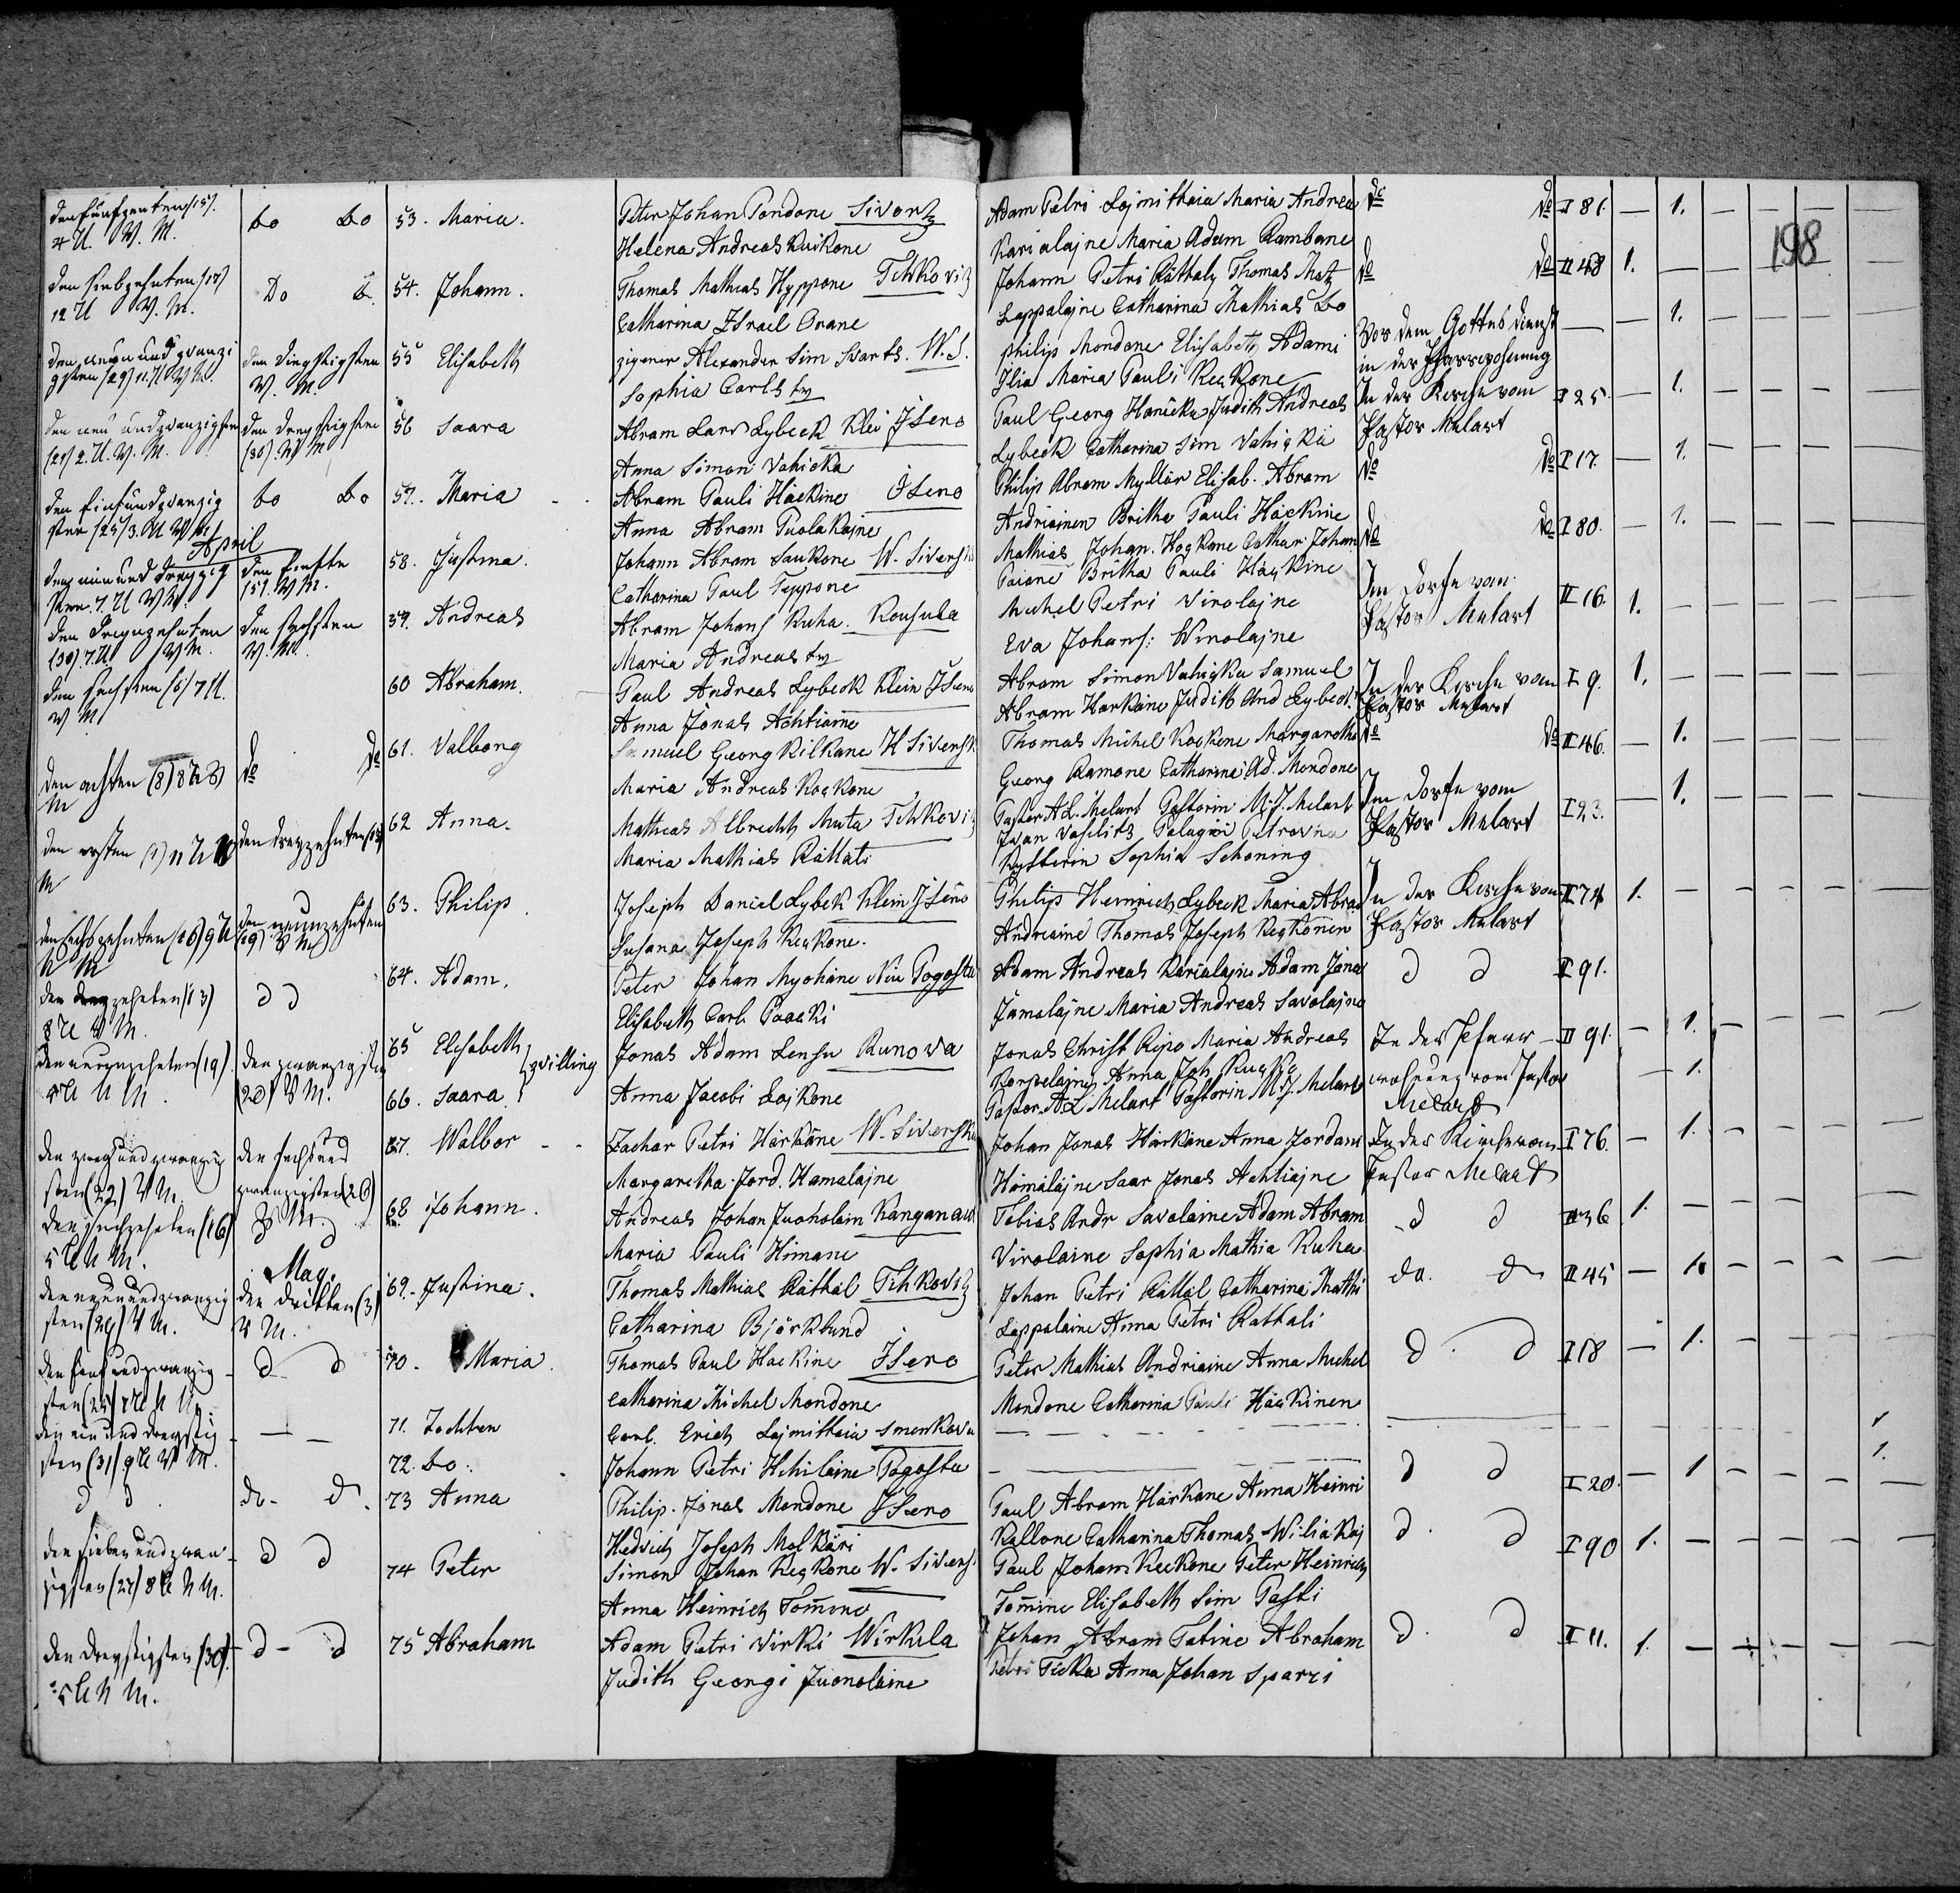 198
den fünfzehnten (15). do do 53. Maria. Peter Johan Pondone Sivortz Adam Petri Lajmittaia Maria Andrea do do I 81. — 1. — — — —
4 U. V. M. Helena Andreas Kuikone Karialajne Maria Adam Rambone
den siebzehnten (17) Do 54. Johann. Thomas Mathias Hyppone Tihkovitz Johann Petri Rättaly Thomas Matz do do II 48 1. — — — — —
12 U V. M. Catharina Israel Orane Lappalajne Catharina Mathias Do
den neun und zwanzi den dreysigsten 55 Elisabeth zigener Alexander Sim Svarts. W. S. Philip Mondone Elisabeth Adami Vor dem Gottes dienst — — 1. — — — —
gsten (29) 11. U V M. V. M. Sophia Carls tr Ilia Maria Pauli Keckone in der Pfarrwohnung
den neun und zwanzigsten den dreysigsten 56 Saara Abram Lars Lybeck Klei Iseno Paul Georg Hanicka Judith Andreas In der Kirche vom I 25. — 1. — — — —
(29) 2. U. V. M. (30) V M Anna Simon Vahicka Lybeck Catharina Sim Vahickä Pastor Melart
den fünfundzwanzig do do 57. Maria Abram Pauli Häckine Iseno Philip Abram Myllär Elisab. Abram do do I 17. — 1. — — — —
sten (25) 3. U V M. Anna Abram Puolakajne Andriainen Britha Pauli Häckine
April
den ein und dreyzig den fünfte 58. Justina. Johann Abram Saukone W. Siversk Mathias Johan. Kockone Cathar: Johan do do I 80. — 1. — — — —
sten. 7. U V M. (5). V M. Catharina Paul Teppone Paiane Britha Pauli Häckine
den dreyzehnten den sechsten 59. Andreas Abram Johans Kuha. Rousula Michel Petri Virolajne Im Dorfe vom II 16. 1. — — — — —
7. U V M. V. M. Maria Andreas tr Eva Johans: Wirolajne Pastor Melart
den sechsten (6) 7 U. 60 Abraham. Paul Andreas Lybeck Klein Iseno Abram Simon Vahicka Samuel In der Kirche vom I 9. 1. — — — — —
V M Anna Jonas Achtiaine Abram Harkäne Judith And Lybeck Pastor Melart
den achten (8) 8 U V do do 61. Valborg Samuel Georg Kilkane W Siversk Thomas Michel Kockone Margaretha do do II 46. — 1. — — — —
M Maria Andreas Kockone Georg Ramone Catharine Ad. Mondone
den ersten (1) 11 U V den dreyzehnten (13) 62 Anna. Mathias Albrecht Muta Tihkovitz Pastor A L. Melart Pastorin M. J. Melart Im Dorfe vom I 23. — 1. — — — —
M Maria Mathias Rättäti Iwan Vasilitz Palagei Petrovna Pastor Melart
Kysterin Sophia Schoning
den sechszehnten (16) 9 U den neunzehnten 63. Philip. Joseph Daniel Lybek Klein Iseno Philip Heinrich Lybeck Maria Abra In der Kirche vom II 74 1. — — — — —
N M (19) V M Susana Joseph Keckone. Andriaine Thomas Joseph Keckonen Pastor Melart
den dreyzehnten (13) d d 64. Adam. Peter Johan Myohäne Niu Pogosta Adam Andreas Karialajne Adam Jona d d II 91.
8 U V M. Elisabeth Carl Paacki Jämalajne Maria Andreas Savolajne
den neunzehnten (19) den zwanzigsten 65 Elisabeth } zvilling Jonas Adam Lensu Runova Jonas Christ Ripo Maria Andreas In der Pfarr- II 91. — 1. — — — —
5 U N M. (20) V M. 66. Saara. Anna Jacobi Lajkone Korpelajne Anna Joh Kucka wohnung vom Pastor — 1.
Pastor A L Melart Pastorin M J. Melart Melart
den zwey und zwanzig den sechs und 67. Walbor Zachar Petri Härkäne W. Siversk Johan Jonas Härkäne Anna Jordani In der Kirche vom I 76. — 1. — — — —
sten (22) V M. zwanzigsten (26) Margaretha Jord. Hamalajne Hämäläjne Saar Jonas Achtiajne Pastor Melart
den sechzehnten (16) V M. 68 Johann. Andreas Johan Juoholain Kanganaus Tobias Andr Savolaine Adam Abram d d II 36 1. — — —
5 U N M. Maria Pauli Himane Virolaine Sophia Mathia Kuha
May.
den neun und zwanzig den dritten (3) 69. Justina. Thomas Mathias Rättäl Tihkovitz Johan Petri Rättäl Catharina Mathi do. d II 45 — 1. — — — —
sten (29) V M. V M. Catharina Björklund Lappalaine Anna Petri Rättäli
den fünf und zwanzig d d 70. Maria. Thomas Paul Häckine Iseno Peter Mathias Andriaine Anna Michel d d I 18 — 1. — — — —
sten (25) N M Catharina Michel Mondone Mondone Catharina Pauli Häckinen
den ein und dreysig — — 71. Tochter Carl. Erich Lajmittaia Smenkova 1
sten (31) 9 U V M. 72. do. Johann Petri Hihlaine Pogosta 1.
d d do d 73 Anna Philip. Jonas Mondone Iseno Paul Abram Härkäne Anna Heinri d d I 20. — 1 — — — —
Hedvich Joseph Molkäri Kallone Catharina Thomas Wiliakaj
den sieben und zwan d d 74 Peter Simon Johan Keckone W. Sivers Paul Johan Keckone Peter Heinrich d d I 90 1. — — — — —
zigsten (27) 8 U N M. Anna Heinrich Tomine Tomine Elisabeth Sim Pasti
den dreysigsten (30). d — d 75 Abraham Adam Petri Virki Wirkila Johan Abram Tatine Abraham d d I 11. 1. — — — — —
5 U N M. Judith Georgi Juonolaine Petri Ticka Anna Johan Sparri